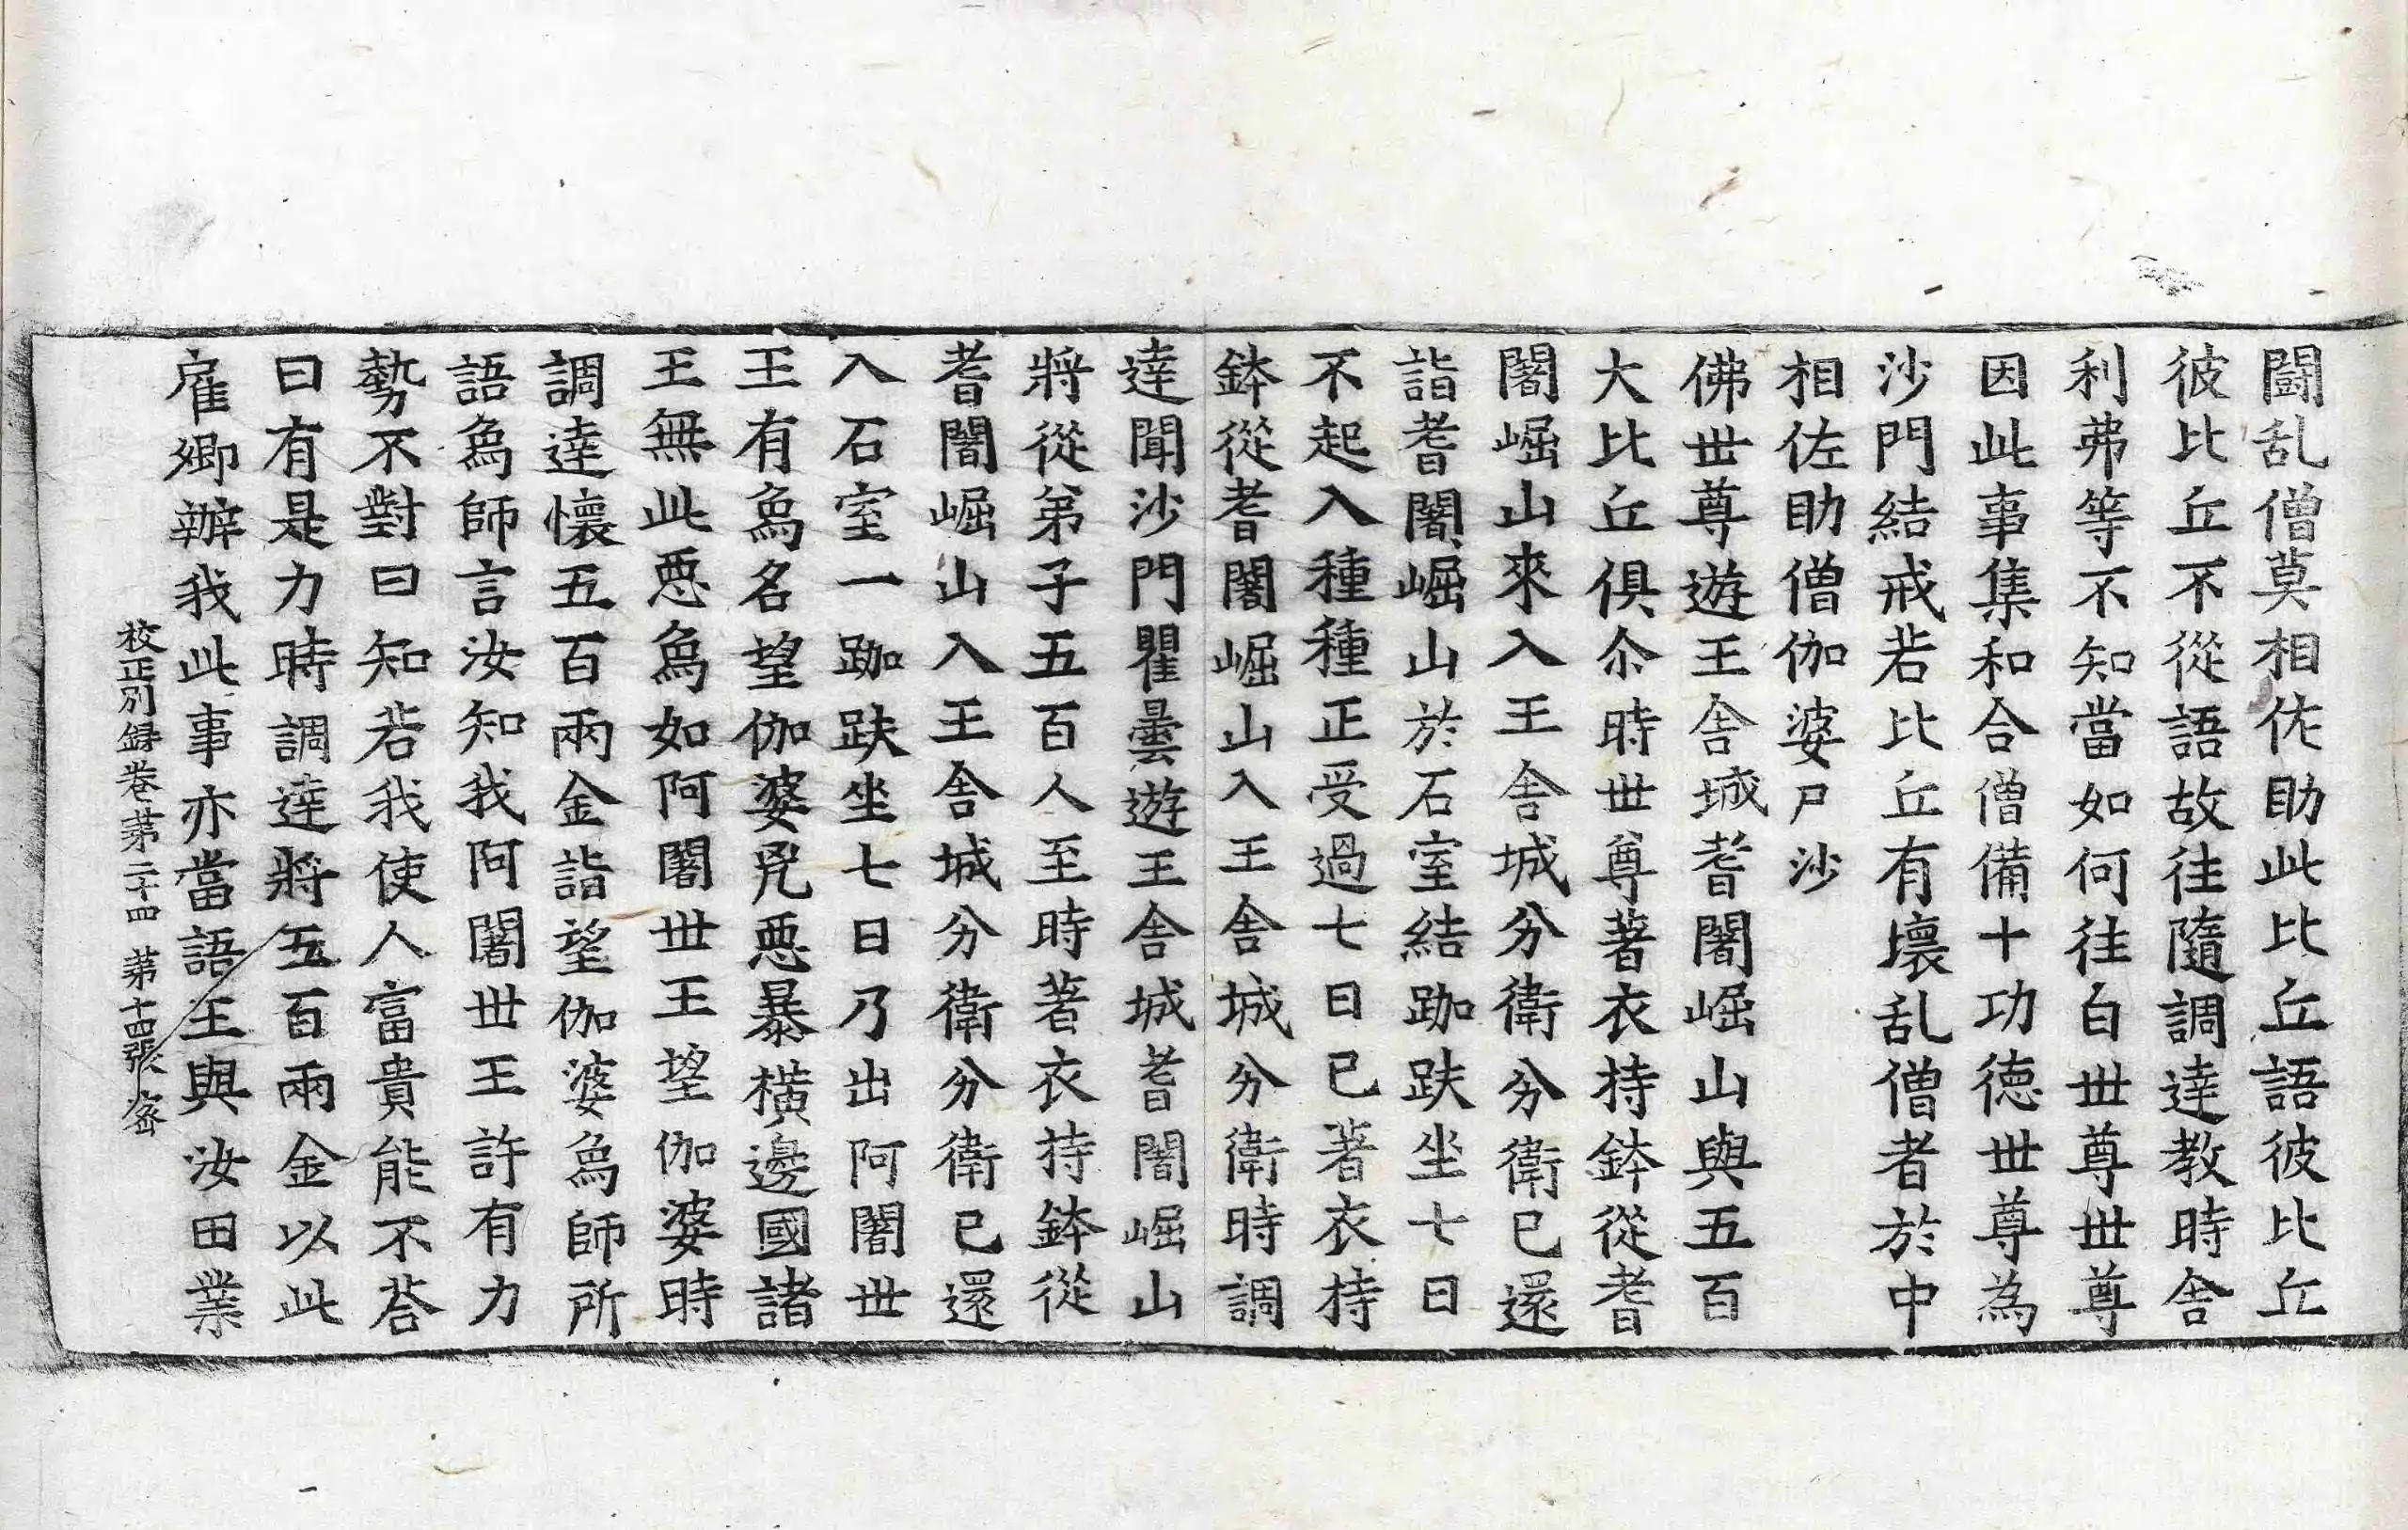 闘乱僧莫相佐助此比丘語彼比丘
彼比丘不從語故往隨調達教時舎
利弗等不知當如何往白丗尊丗尊
因此事集和合僧備十功徳丗尊為
沙門結戒若比丘有壞乱僧者於中
相佐助僧伽婆尸沙
佛丗尊遊王舎城耆闍崛山與五百
大比丘俱尒時丗尊著衣持鉢從耆
闍崛山來入王舎城分衛分衛已還
詣耆闍崛山於石室結跏趺坐七日
不起入種種正受過七日已著衣持
鉢從耆闍崛山入王舎城分衛時調
達聞沙門瞿曇遊王舎城耆闍崛山
將從弟子五百人至時著衣持鉢從
耆闍崛山入王舎城分衛分衛已還
入石室一跏趺坐七日乃出阿闍丗
王有爲名望伽婆兇惡暴橫邊國諸
王無此惡爲如阿闍丗王望伽婆時
調達懷五百兩金詣望伽婆爲師所
語爲師言汝知我阿闍丗王許有力
勢不對曰知若我使人富貴能不荅
曰有是力時調達將五百兩金以此
雇卿辦我此事亦當語王與汝田業
校正別録卷第二十四 第十四張 密